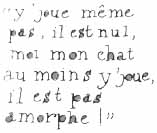 "y'joue même
pas, il est nul,
moi mon chat
au moins y'joue,
il est pas
amorphe !"